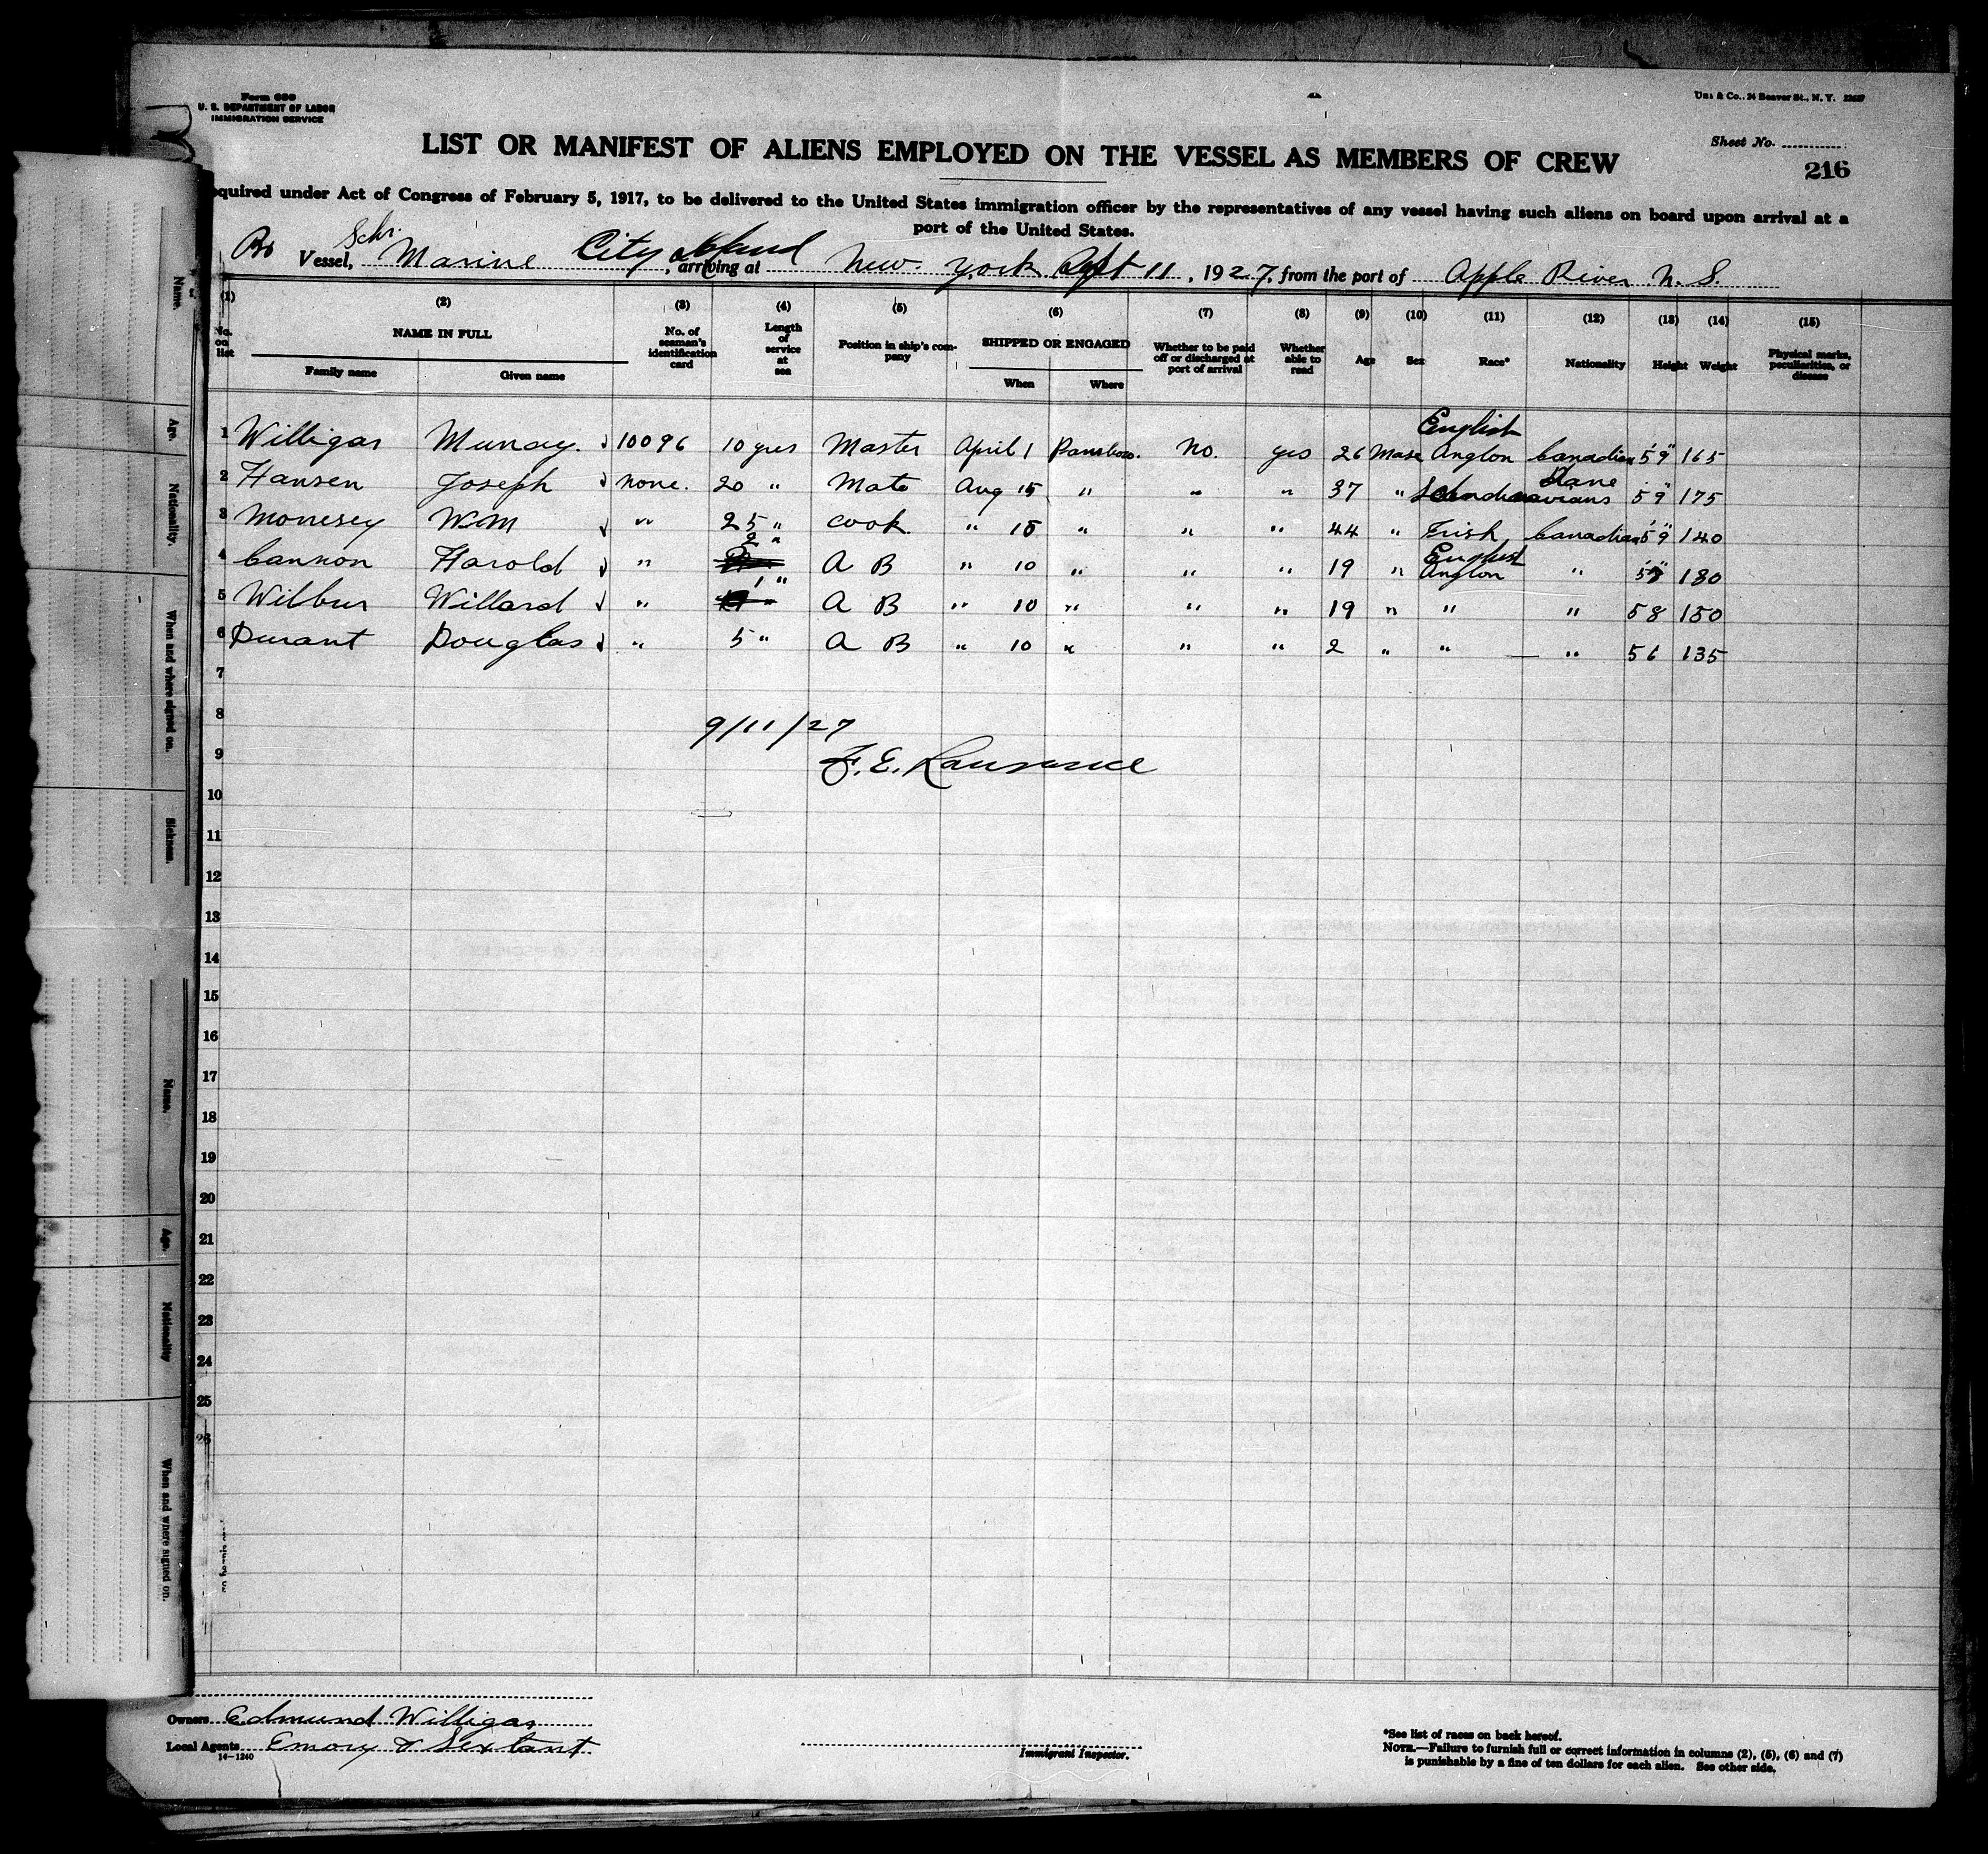 Form 680
U. S. DEPARTMENT OF LABOR
IMMIGRATION SERVICE
24 Beaver St., N. Y.
Sheet No.
216
LIST OR MANIFEST OF ALIENS EMPLOYED ON THE VESSEL AS MEMBERS OF CREW
equired under Act of Congress of February 5, 1917, to be delivered to the United States immigration officer by the representatives of any vessel having such aliens on board upon arrival at a
port of the United States.
Br Schr. Vessel, Marine City Island, arriving at New York Sept 11, 1927, from the port of Apple River N. S.
(1) (2) (3) (4) (5) (6) (7) (8) (9) (10) (11) (12) (13) (14) (15)
No. on list NAME IN FULL Family name Given name No. of seaman's identification card Length of service at sea Position in ship's company SHIPPED OR ENGAGED When Where Whether to be paid off or discharged at port of arrival Whether able to read Age Sex Race* Nationality Height Weight Physical marks, peculiarities, or disease
English
1 Willigar Murray. 10096 10 yrs Master April 1 No. yes 26 Anglon Canadian 5'9" 165
Dane
2 Hansen Joseph none. 20 " Mate Aug 15 " " " 37 " 5'9" 175
3 Wm " 25 " cook " 15 " " " 44 " Irish Canadian 5'9" 140
2 " English
4 Cannon Harold " A B " 10 " " " 19 " Anglon " 180
1 "
5 Wilbur Willard " A B " 10 " " " 19 " " " 5 8 150
6 Durant Douglas " 5 " A B " 10 " " " 2 " " " 5 6 135
7
8
9/11/27
9
F. E.
10
11
12
13
14
15
16
17
18
19
20
21
22
23
24
25
26
Owners Edmund Willigar
Local Agents Emory & Sextant
14-1240
Immigrant Inspector.
*See list of races on back hereof.
NOTE.—Failure to furnish full or correct information in columns (2), (5), (6) and (7)
is punishable by a fine of ten dollars for each alien. See other side.
Name.
Age.
Nationality.
When and where signed on.
Sickness.
Name.
Age.
Nationality
When and where signed on.